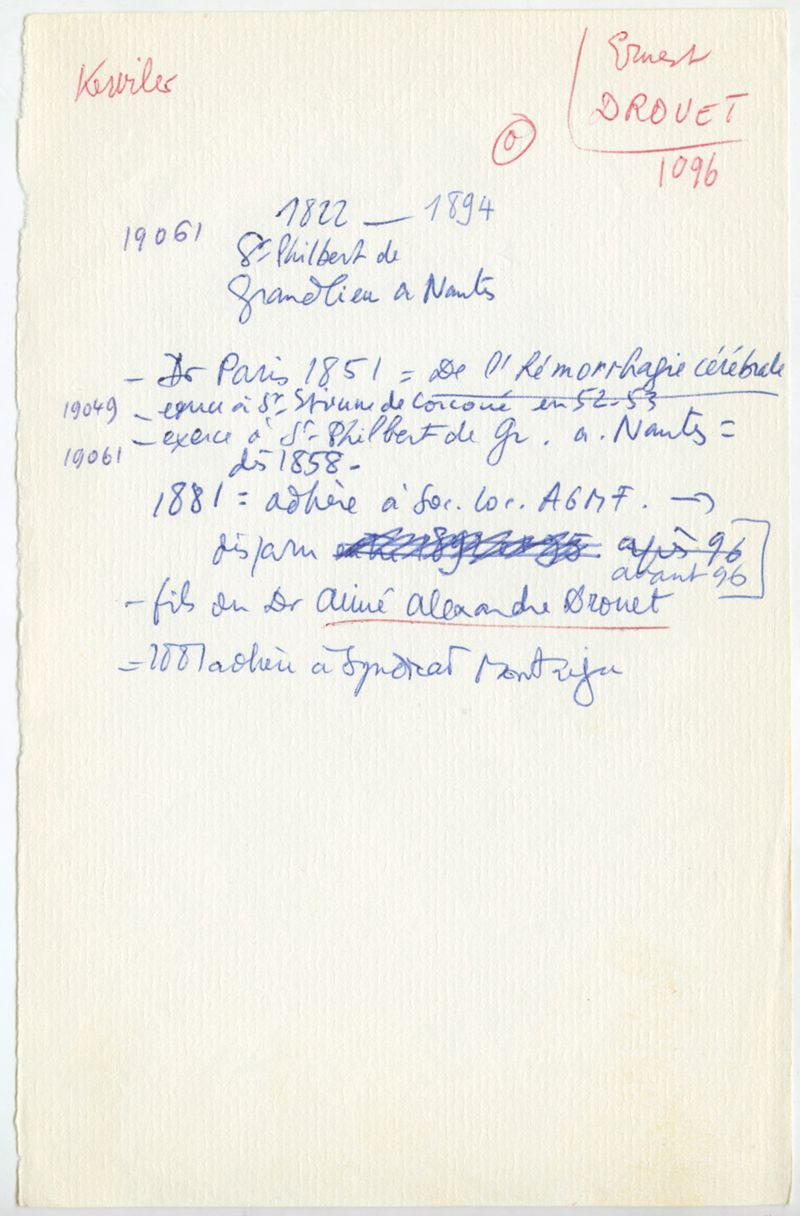 Kerviler
Ernest
DROUET
1096
0
1822 — 1894
19061
St Philbert de
Grandlieu a Nantes
- Dr Paris 1851 = De l'hémorrhagie cérébrale
19049 - exerce à St Etienne de Corcoué en 52-53
- exerce à St Philbert de Gr. a. Nantes =
19061
dès 1858 -
1881 = adhère à Soc. loc. AGMF. →
disparu après 96
avant 96
- fils du Dr Aimé Alexandre Drouet
= 1881 adhère à Syndicat Montaigu